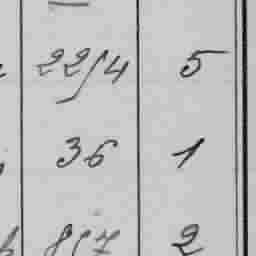 2254 5
36 1
857 2